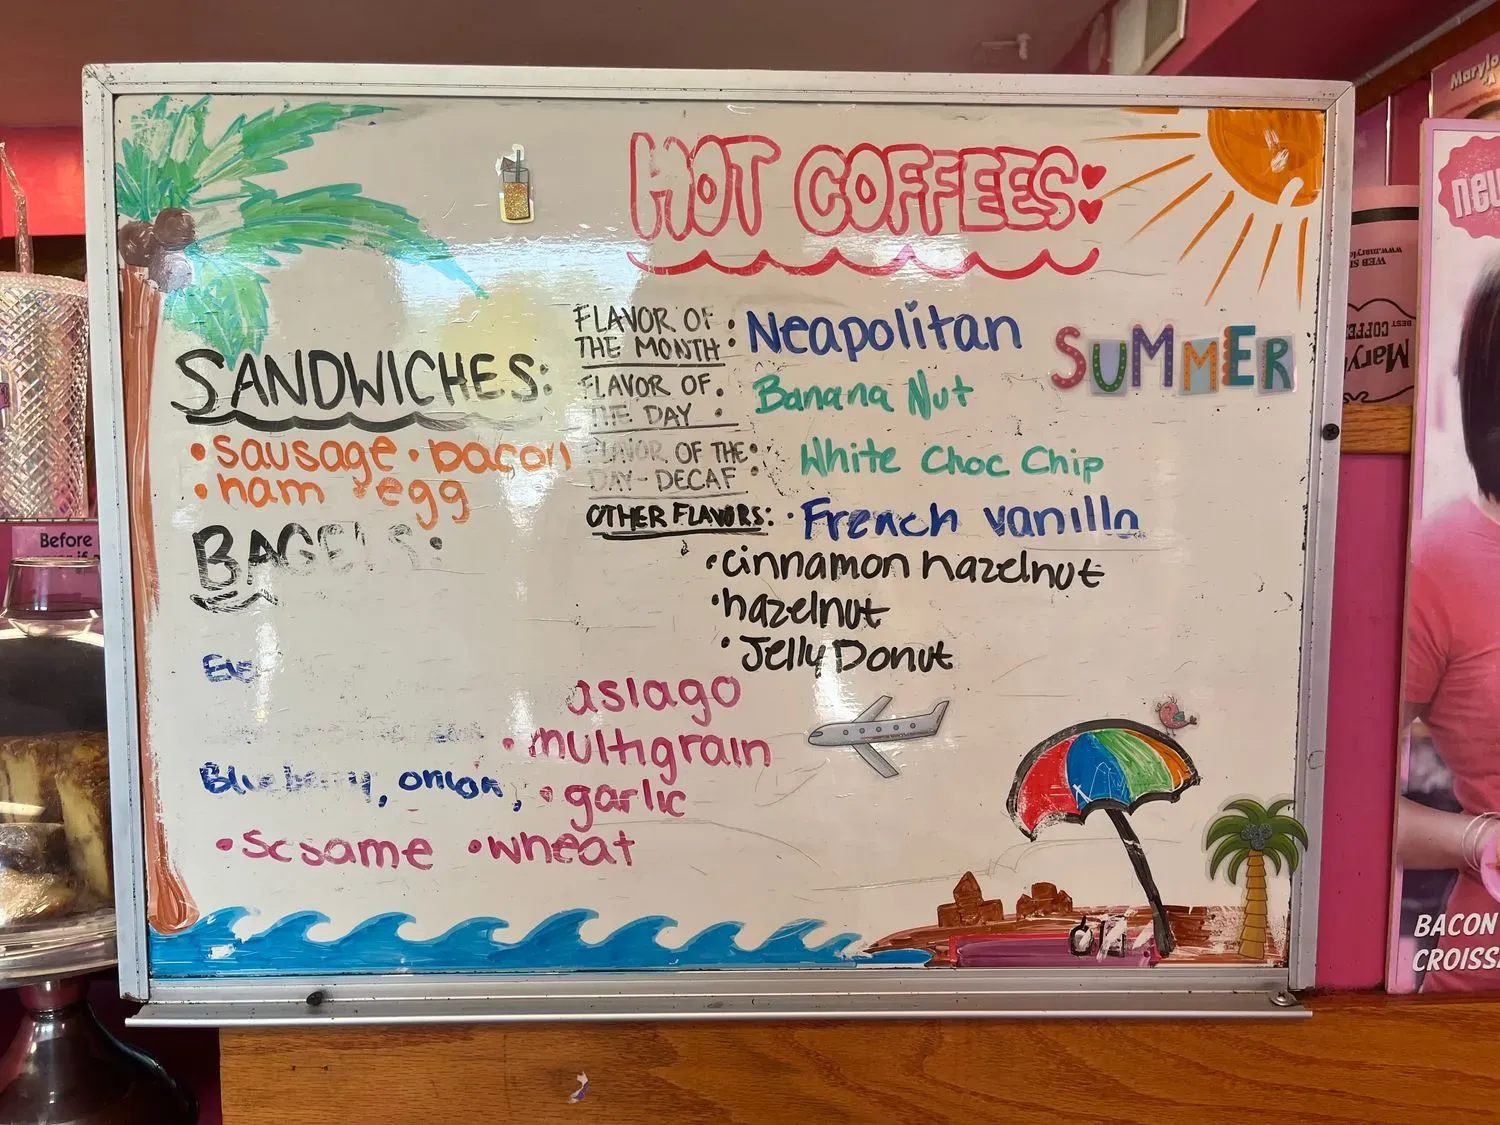 HOT COFFEES:
FLAVOR OF
THE MONTH : Neapolitan
FLAVOR OF
THE DAY : Banana Nut
FLAVOR OF THE
DAY- DECAF : White Choc Chip
OTHER FLAVORS: • French vanilla
• cinnamon hazelnut
• hazelnut
• Jelly Donut
SUMMER
SANDWICHES:
• sausage • bacon
• ham egg
BAGELS:
asiago
• multigrain
Blueberry, onion, • garlic
• sesame • wheat
Before
new
WEB SI
www.marylo
BEST COFFE
Mary
Marylo
BACON
CROISS